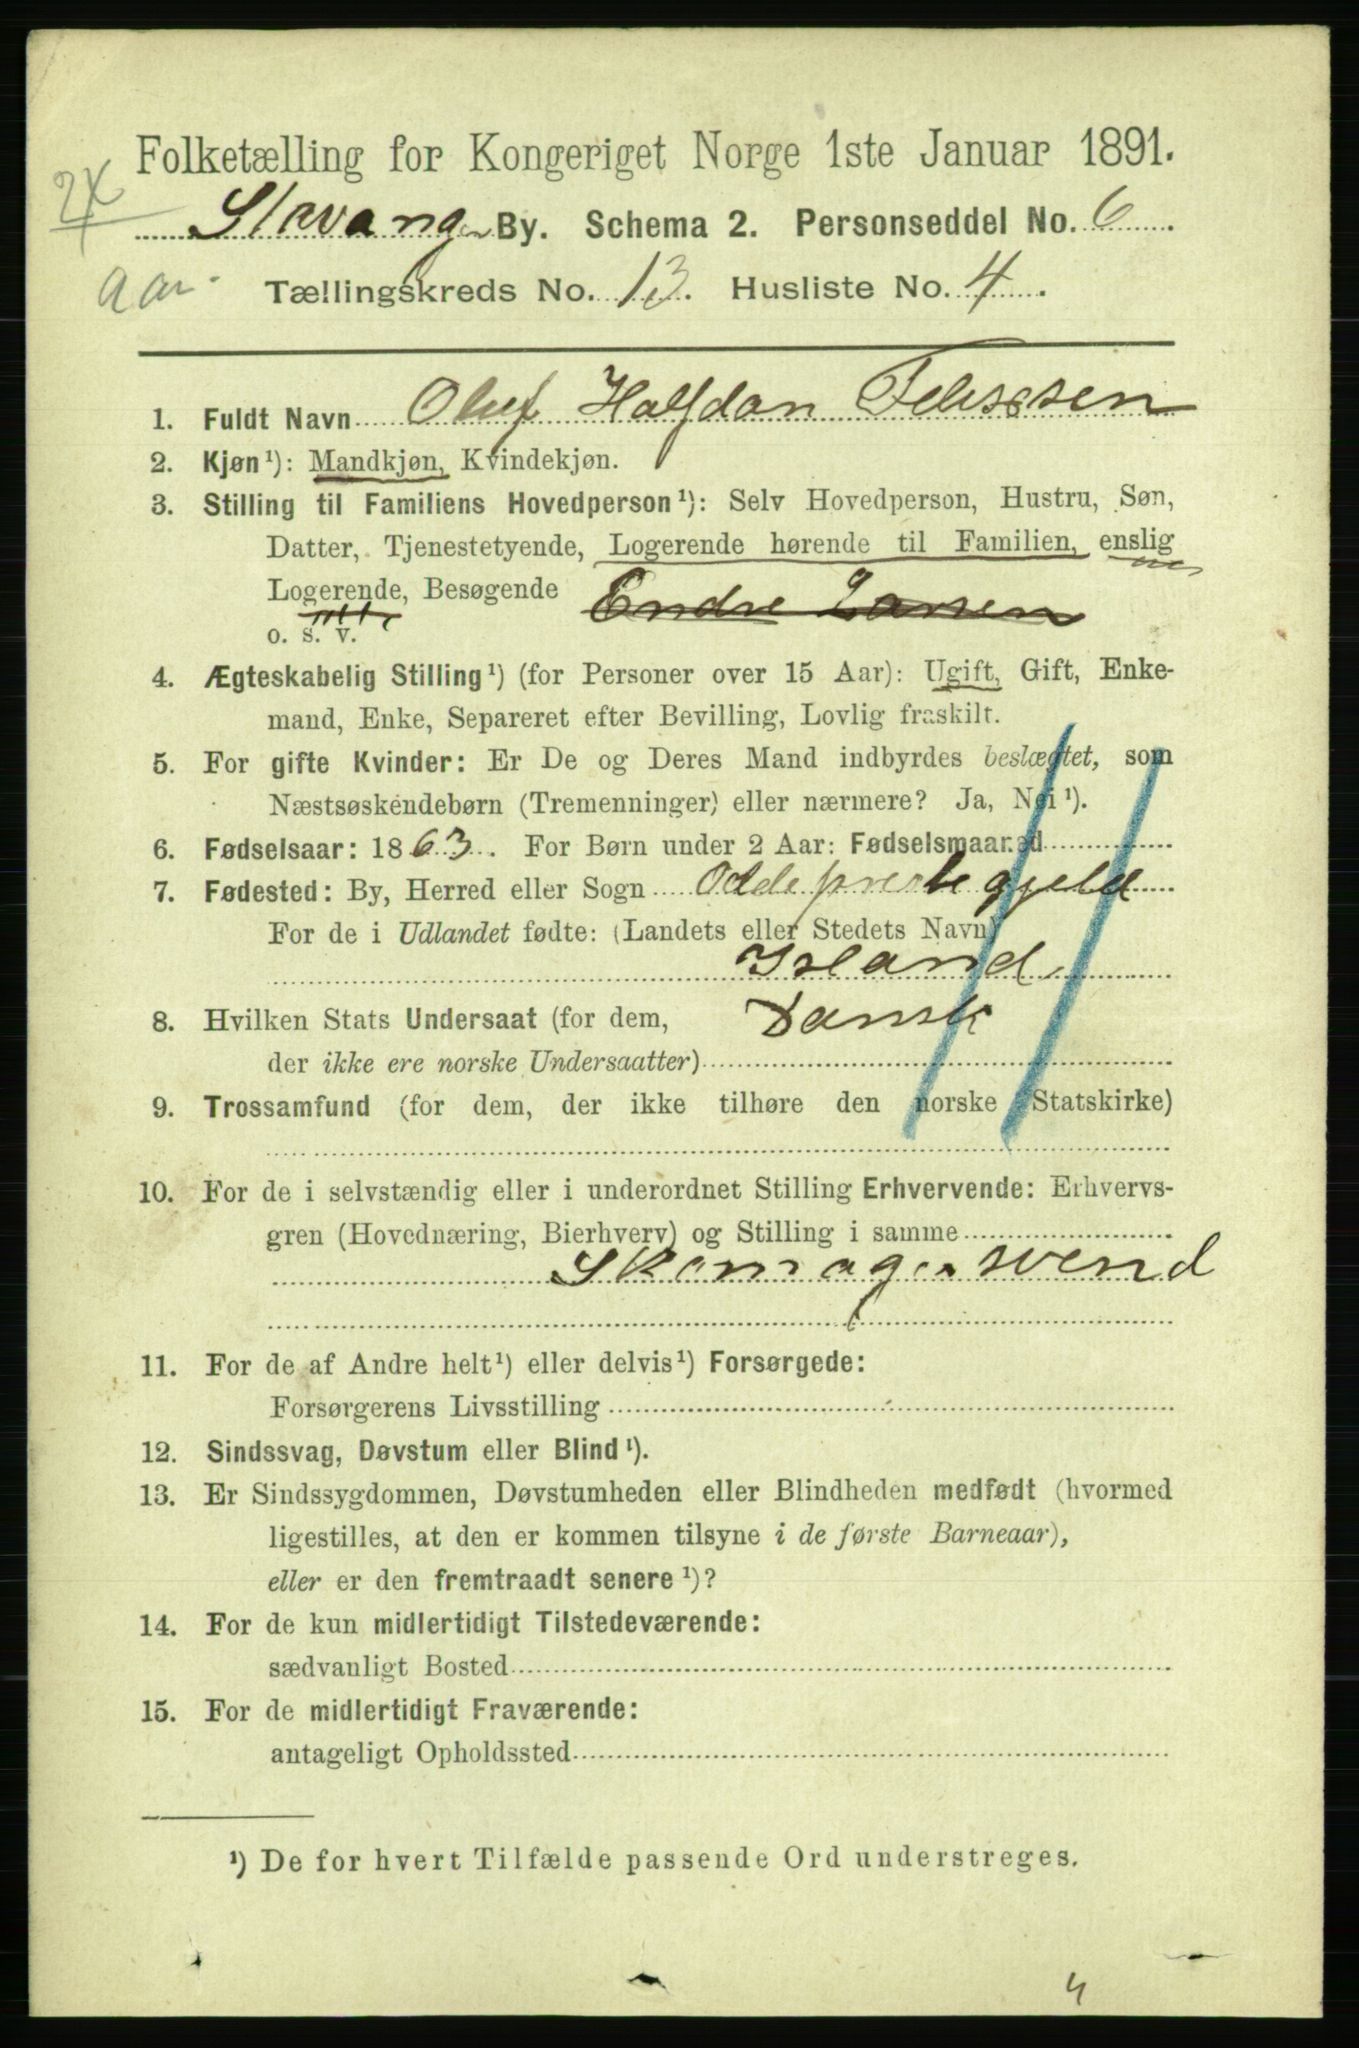 Folketælling for Kongeriget Norge 1ste Januar 1891.
Stavanger By. Schema 2. Personseddel No. 6.
Tællingskreds No. 13. Husliste No. 4.
1. Fuldt Navn Oluf Halfdan
2. Kjøn ¹): Mandkjøn, Kvindekjøn.
3. Stilling til Familiens Hovedperson ¹): Selv Hovedperson, Hustru, Søn,
Datter, Tjenestetyende, Logerende hørende til Familien, enslig
Logerende, Besøgende Endre Larsen
o. s. v.
4. Ægteskabelig Stilling ¹) (for Personer over 15 Aar): Ugift, Gift, Enke-
mand, Enke, Separeret efter Bevilling, Lovlig fraskilt.
5. For gifte Kvinder: Er De og Deres Mand indbyrdes beslægtet, som
Næstsøskendebørn (Tremenninger) eller nærmere? Ja, Nei ¹).
6. Fødselsaar: 1863. For Børn under 2 Aar: Fødselsmaaned
7. Fødested: By, Herred eller Sogn Odde prestegjeld
For de i Udlandet fødte: (Landets eller Stedets Navn)
Island
8. Hvilken Stats Undersaat (for dem, Dansk
der ikke ere norske Undersaatter)
9. Trossamfund (for dem, der ikke tilhøre den norske Statskirke)
10. For de i selvstændig eller i underordnet Stilling Erhvervende: Erhvervs-
gren (Hovednæring, Bierhverv) og Stilling i samme
Skomagersvend
11. For de af Andre helt ¹) eller delvis ¹) Forsørgede:
Forsørgerens Livsstilling
12. Sindssvag, Døvstum eller Blind ¹).
13. Er Sindssygdommen, Døvstumheden eller Blindheden medfødt (hvormed
ligestilles, at den er kommen tilsyne i de første Barneaar),
eller er den fremtraadt senere ¹)?
14. For de kun midlertidigt Tilstedeværende:
sædvanligt Bosted
15. For de midlertidigt Fraværende:
antageligt Opholdssted
¹) De for hvert Tilfælde passende Ord understreges.
4